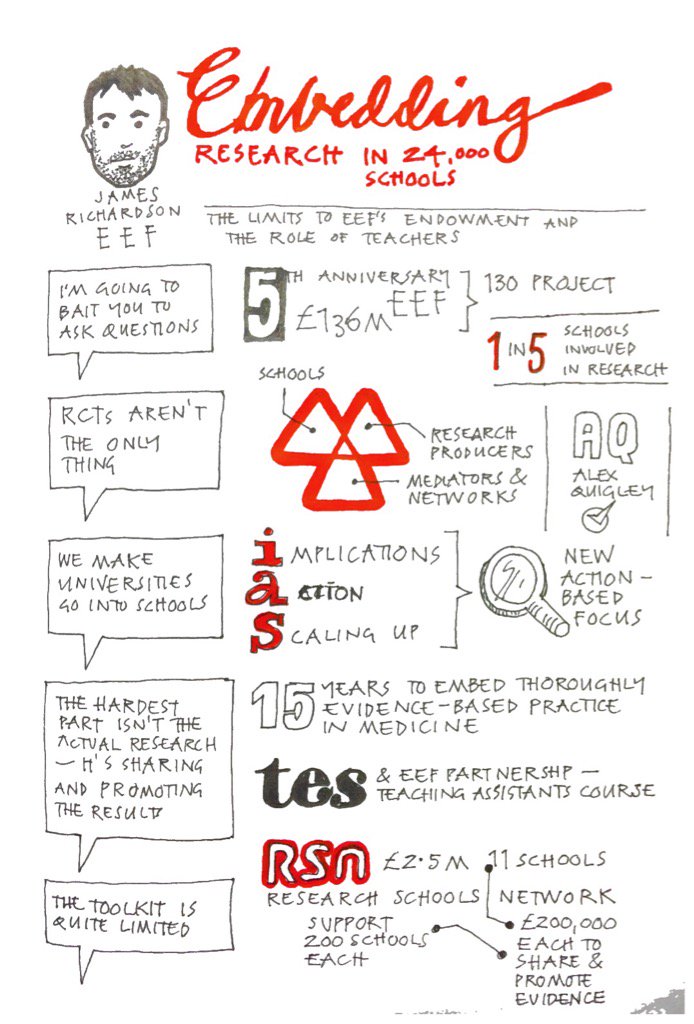 Embedding
RESEARCH IN 24,000
SCHOOLS
JAMES
RICHARDSON
EEF
THE LIMITS TO EEF'S ENDOWMENT AND
THE ROLE OF TEACHERS
I'M GOING TO
BAIT YOU TO
ASK QUESTIONS
5TH ANNIVERSARY
EEF
£136M
130 PROJECT
1 IN 5
SCHOOLS
INVOLVED
IN RESEARCH
RCTs AREN'T
THE ONLY
THING
SCHOOLS
RESEARCH
PRODUCERS
MEDIATORS &
NETWORKS
AQ
ALEX
QUIGLEY
WE MAKE
UNIVERSITIES
GO INTO SCHOOLS
iMPLICATIONS
aCTION
SCALING UP
NEW
ACTION-
BASED
FOCUS
THE HARDEST
PART ISN'T THE
ACTUAL RESEARCH
— IT'S SHARING
AND PROMOTING
THE RESULTS
15 YEARS TO EMBED THOROUGHLY
EVIDENCE-BASED PRACTICE
IN MEDICINE
tes & EEF PARTNERSHP —
TEACHING ASSISTANTS COURSE
THE TOOLKIT IS
QUITE LIMITED
RSN £2.5M 11 SCHOOLS
RESEARCH SCHOOLS NETWORK
SUPPORT
200 SCHOOLS
EACH
£200,000
EACH TO
SHARE &
PROMOTE
EVIDENCE